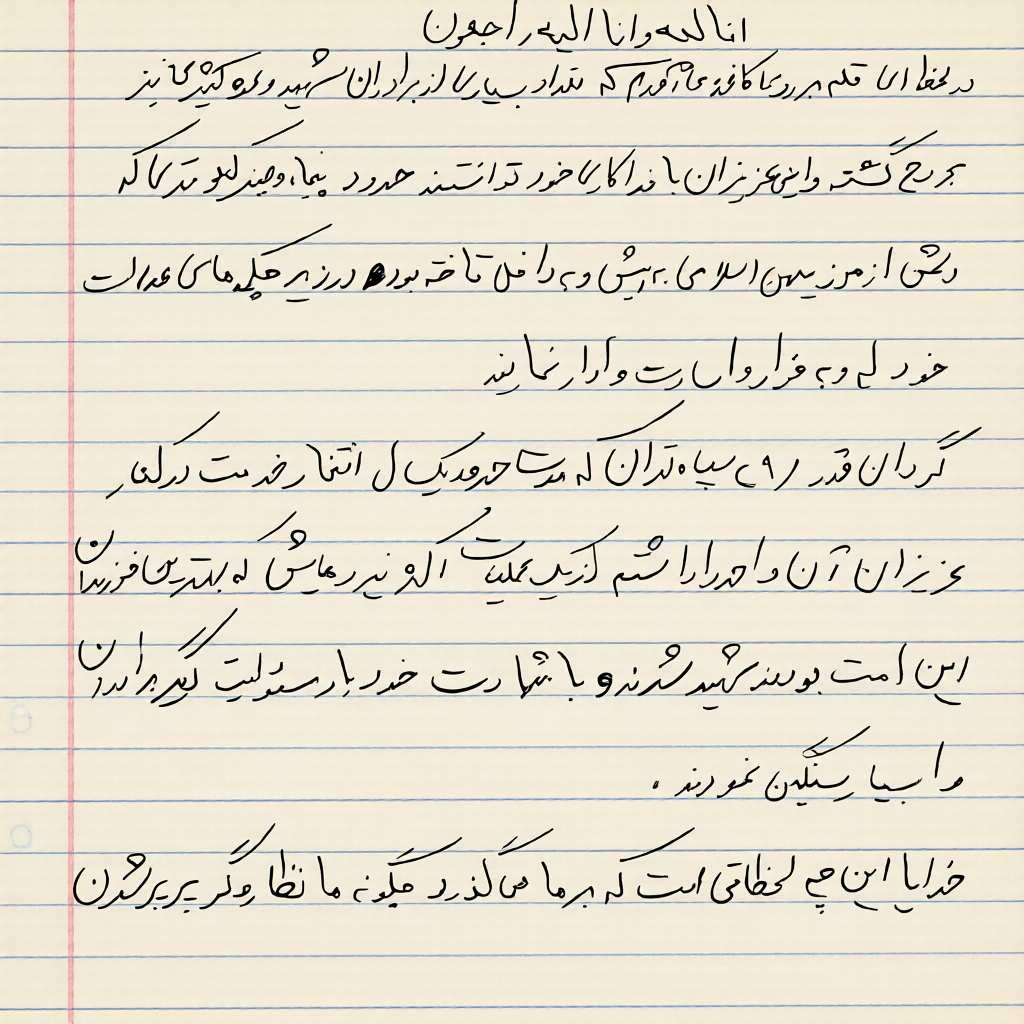 انا لله وانا الیه راجعون
در لحظه ای قلم بر روی کاغذ می آورم که تعداد بسیاری از برادران شهید و عده کثیری نیز
مجروح گشته و این عزیزان با فداکاری خود توانستند حدود پنجاه و چند کیلومتری که
دشمن از مرز میهن اسلامی به پیش و به داخل تاخته بود در زیر چکمه های عدالت
خود له و به فرار و اسارت وادار نمایند
گردان قدر سپاه تهران که مدت حدود یکسال افتخار خدمت در کنار
عزیزان آن واحد را داشتم در یک عملیات اکثر نیروهایش که بهترین فرزندان
این امت بودند شهید شدند و با شهادت خود بار مسئولیت دیگر برادران
را بسیار سنگین نمودند .
خدایا این چه لحظاتی است که بر ما می گذرد چگونه ما نظاره گر پرپر شدن